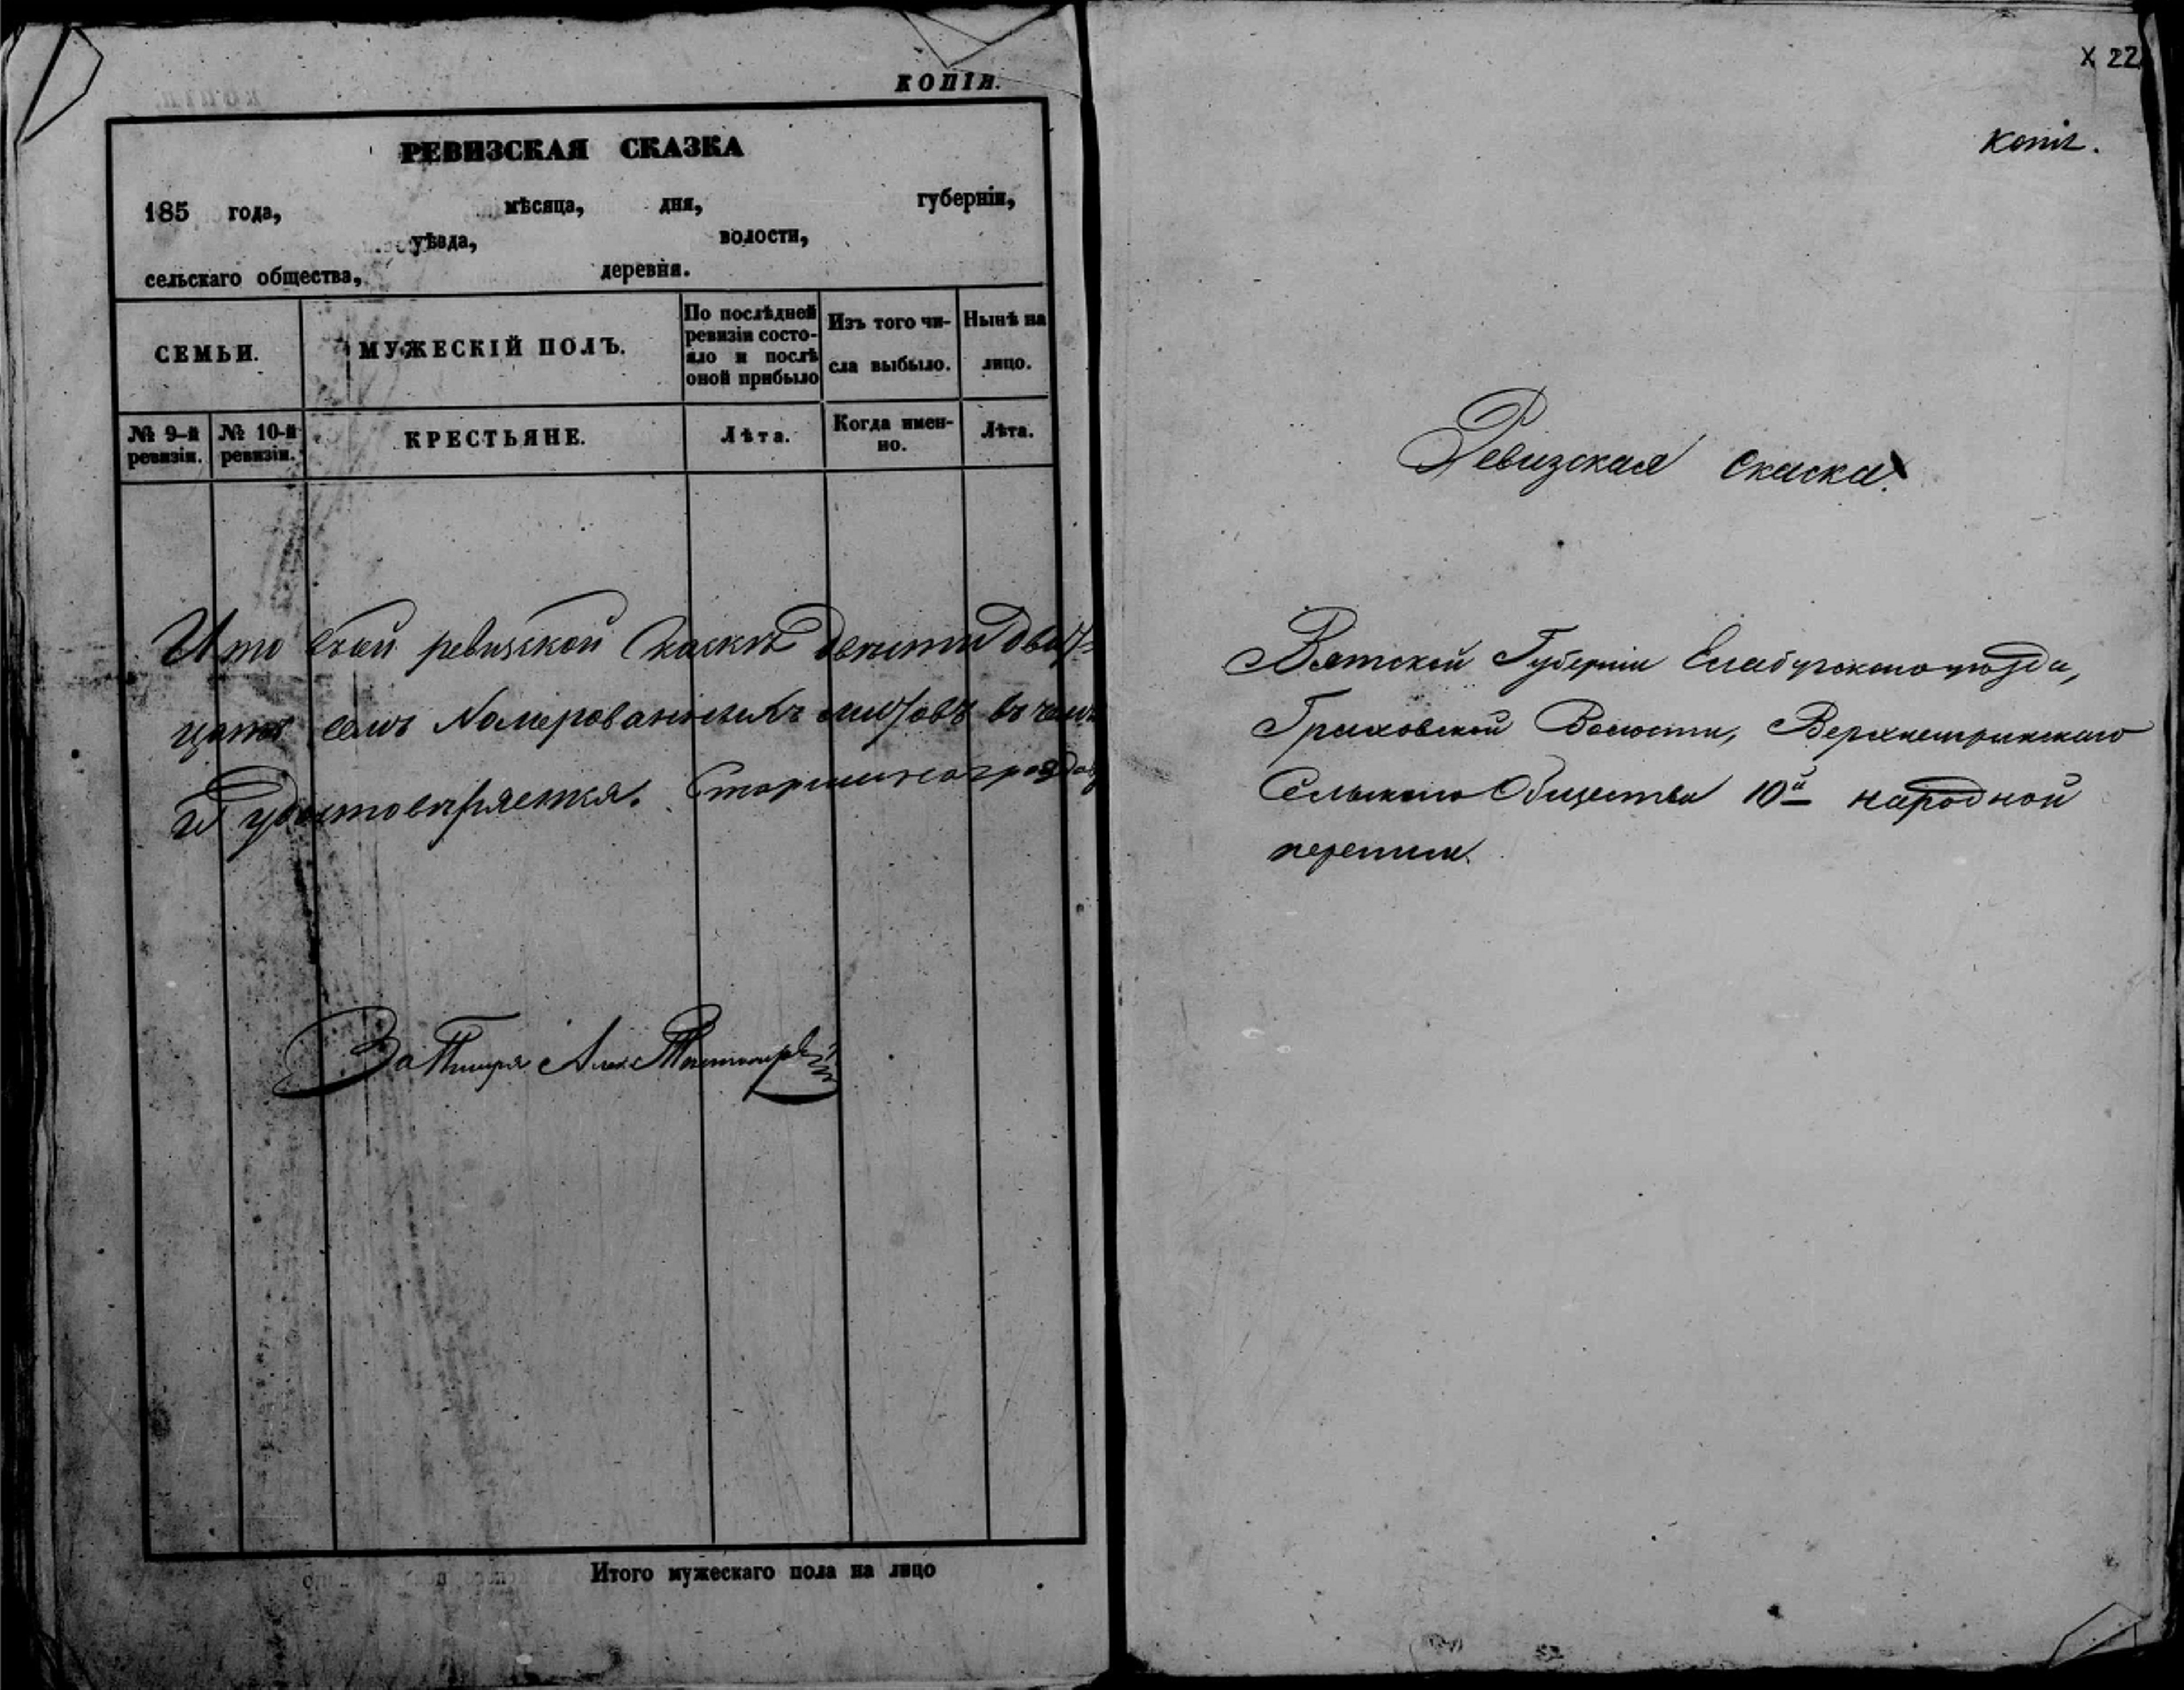 КОПІЯ.
РЕВИЗСКАЯ СКАЗКА
185 года, мѣсяца, дня, губерніи,
уѣзда, волости,
сельскаго общества, деревня.
СЕМЬИ.
МУЖЕСКІЙ ПОЛЪ.
По послѣдней
ревизіи состо-
яло и послѣ
оной прибыло
Изъ того чи-
сла выбыло.
Нынѣ на
лицо.
№ 9-й
ревизіи.
№ 10-й
ревизіи.
КРЕСТЬЯНЕ.
Лѣта.
Когда имен-
но.
Лѣта.
ревизской скаскѣ
цать семь Номерованныхъ листовъ въ чемъ
и удостовѣряется.
За
Итого мужескаго пола на лицо
Х 22
Копія.
Ревизская скаска.
Вятской Губерніи Елабужского уѣзда,
Граховской Волости,
Сельского Общества 10й народной
переписи.